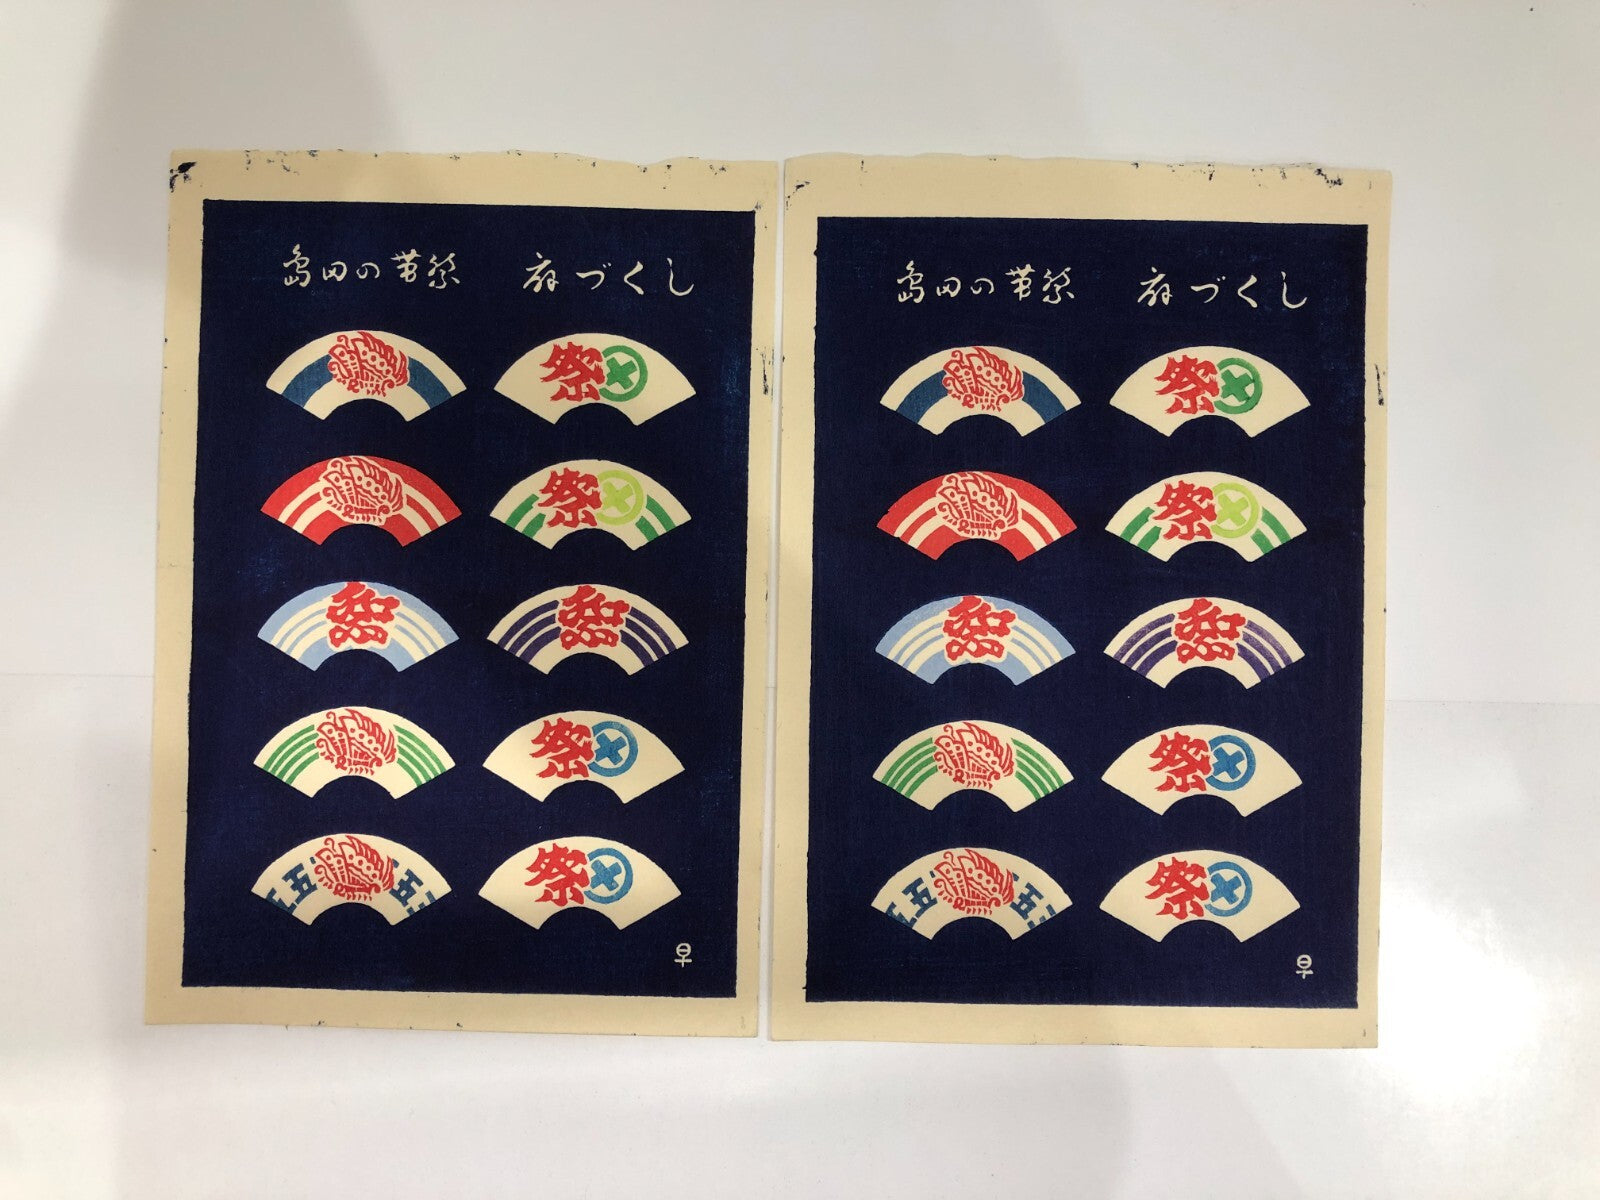 島田の帯祭 扇づくし
祭
祭
祭
祭
五 五
祭
早
島田の帯祭 扇づくし
祭
祭
祭
祭
五 五
祭
早